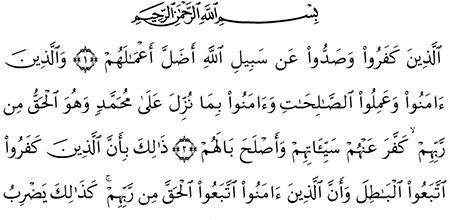 بِسْمِ اللَّهِ الرَّحْمَٰنِ الرَّحِيمِ
ٱلَّذِينَ كَفَرُوا۟ وَصَدُّوا۟ عَن سَبِيلِ ٱللَّهِ أَضَلَّ أَعْمَٰلَهُمْ ﴿١﴾ وَٱلَّذِينَ
ءَامَنُوا۟ وَعَمِلُوا۟ ٱلصَّٰلِحَٰتِ وَءَامَنُوا۟ بِمَا نُزِّلَ عَلَىٰ مُحَمَّدٍ وَهُوَ ٱلْحَقُّ مِن
رَّبِّهِمْ ۙ كَفَّرَ عَنْهُمْ سَيِّـَٔاتِهِمْ وَأَصْلَحَ بَالَهُمْ ﴿٢﴾ ذَٰلِكَ بِأَنَّ ٱلَّذِينَ كَفَرُوا۟
ٱتَّبَعُوا۟ ٱلْبَٰطِلَ وَأَنَّ ٱلَّذِينَ ءَامَنُوا۟ ٱتَّبَعُوا۟ ٱلْحَقَّ مِن رَّبِّهِمْ ۚ كَذَٰلِكَ يَضْرِبُ